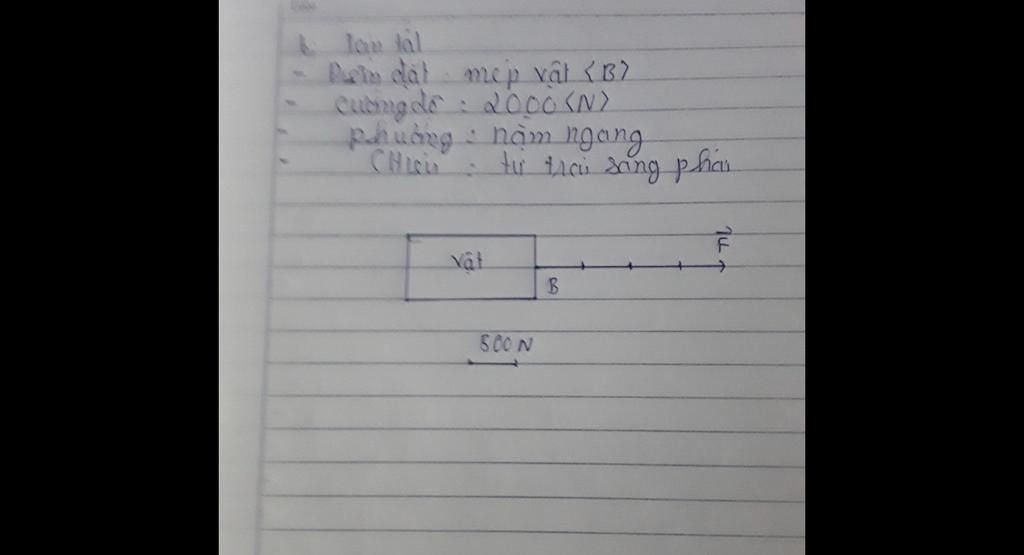 - Điểm đặt : mép vật <B>
- cường độ : 2000 <N>
- phương : nằm ngang
- CHiều : từ trái sang phải
F
vật
B
500 N